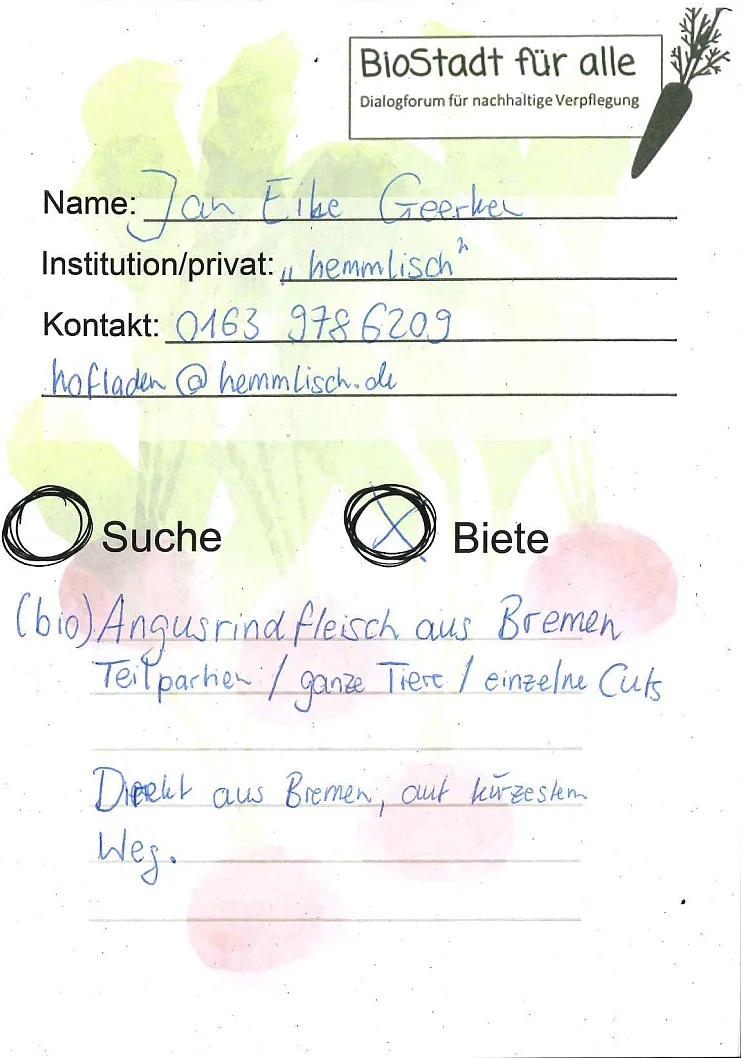 BioStadt für alle
Dialogforum für nachhaltige Verpflegung
Name: Jan Eike Geerken
Institution/privat: „hemmlisch"
Kontakt: 0163 978 6209
hofladen@hemmlisch.de
Suche
Biete
(bio) Angusrindfleisch aus Bremen
Teilpartien / ganze Tiere / einzelne Cuts
Direkt aus Bremen, auf kürzestem
Weg.